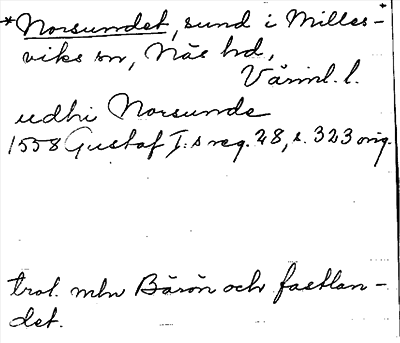 *Norsundet, sund i Milles-
viks sn, Näs hd,
Värml. l.
udhi Norsunde
1558 Gustaf I:s reg. 28, s. 323 orig.
trol. mln Bärön och fastlan-
det.